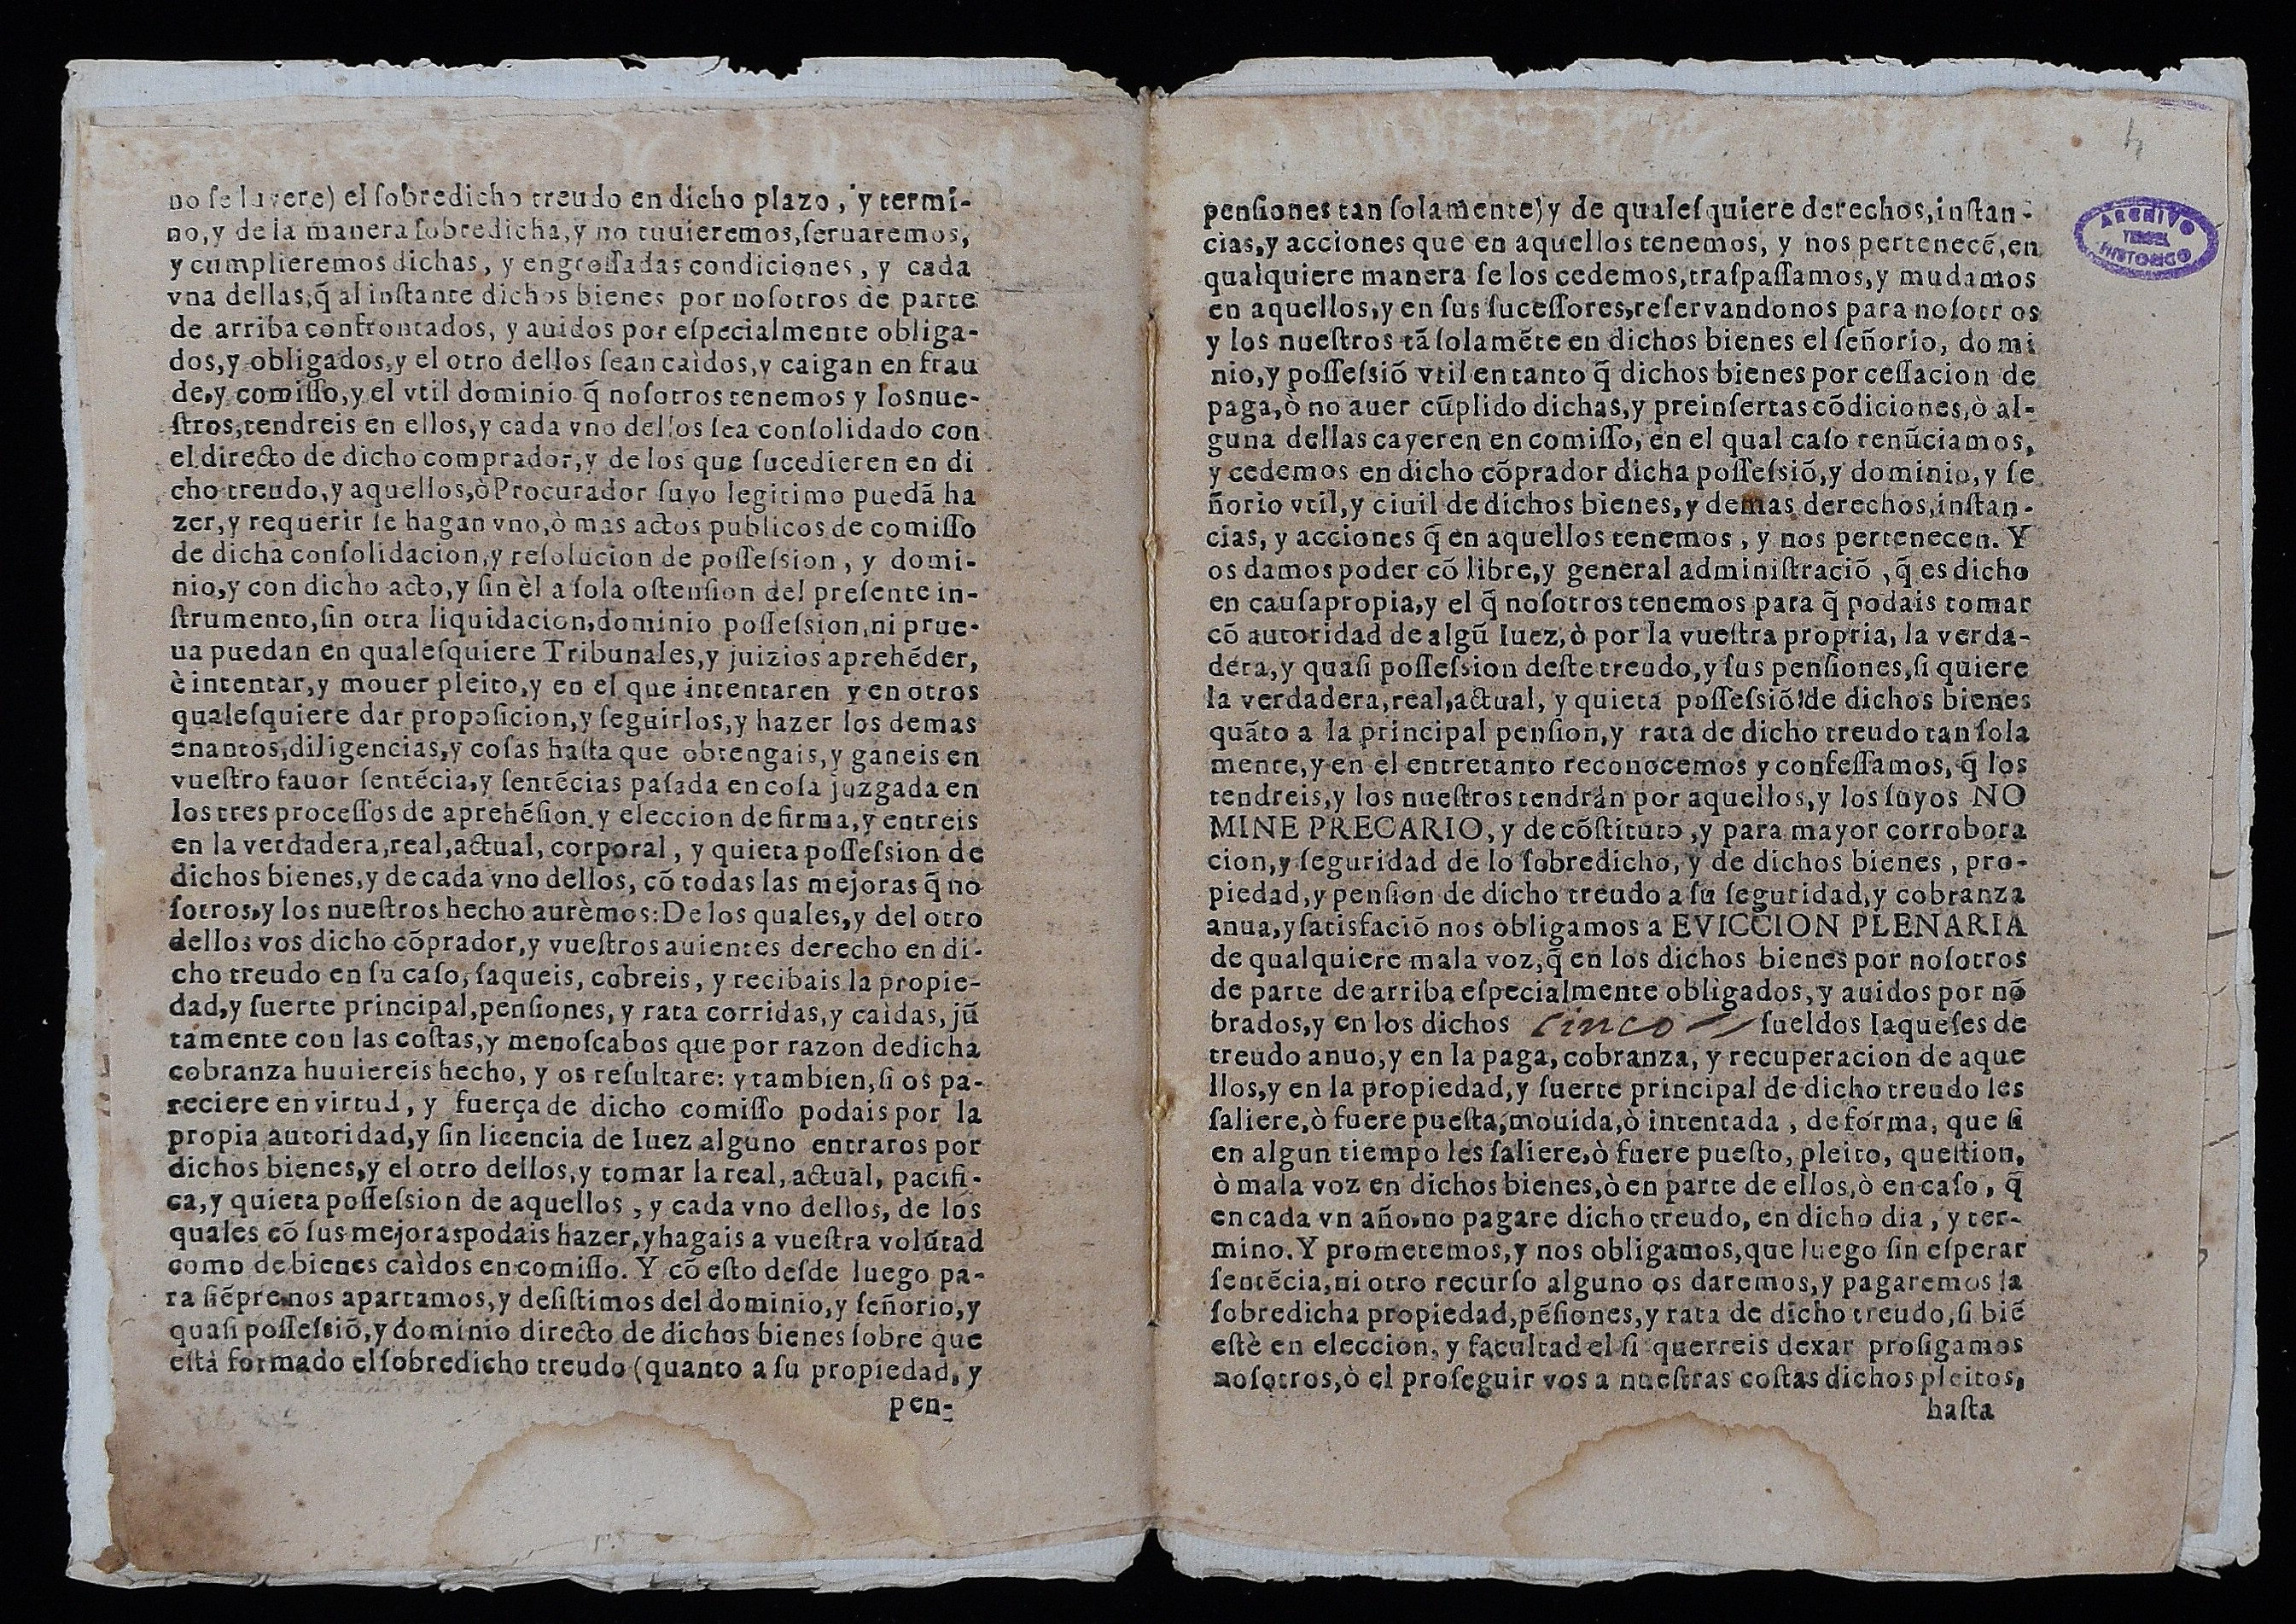 no se luyere) el sobredicho treudo en dicho plazo, y termi-
no,y de la manera sobredicha,y no tuuieremos,seruaremos,
y cumplieremos dichas, y engrossadas condiciones, y cada
vna dellas,q̃ al instante dichos bienes por nosotros de parte
de arriba confrontados, y auidos por especialmente obliga-
dos,y obligados,y el otro dellos sean caìdos,y caigan en frau
de,y comisso,y el vtil dominio q̃ nosotros tenemos y losnue-
stros,tendreis en ellos,y cada vno dellos sea consolidado con
el directo de dicho comprador,y de los que sucedieren en di
cho treudo,y aquellos,ò Procurador suyo legitimo puedã ha
zer,y requerir se hagan vno,ò mas actos publicos de comisso
de dicha consolidacion,y resolucion de possession, y domi-
nio,y con dicho acto,y sin èl a sola ostension del presente in-
strumento,sin otra liquidacion,dominio possession,ni prue-
ua puedan en qualesquiere Tribunales,y juizios aprehẽder,
è intentar,y mouer pleito,y en el que intentaren y en otros
qualesquiere dar proposicion,y seguirlos,y hazer los demas
enantos,diligencias,y cosas hasta que obtengais,y ganeis en
vuestro fauor sentẽcia,y sentẽcias pasada en cosa juzgada en
los tres processos de aprehẽsion,y eleccion de firma,y entreis
en la verdadera,real,actual, corporal, y quieta possession de
dichos bienes,y de cada vno dellos, cõ todas las mejoras q̃ no
sotros,y los nuestros hecho aurèmos:De los quales,y del otro
dellos vos dicho cõprador,y vuestros auientes derecho en di-
cho treudo en su caso, saqueis, cobreis, y recibais la propie-
dad,y suerte principal,pensiones, y rata corridas,y caìdas, jũ
tamente con las costas,y menoscabos que por razon dedicha
cobranza huuiereis hecho, y os resultare: y tambien,si os pa-
reciere en virtud, y fuerça de dicho comisso podais por la
propia autoridad,y sin licencia de Iuez alguno entraros por
dichos bienes,y el otro dellos,y tomar la real, actual, pacifi-
ca,y quieta possession de aquellos, y cada vno dellos, de los
quales cõ sus mejoraspodais hazer,yhagais a vuestra volũtad
como de bienes caìdos en comisso. Y cõ esto desde luego pa-
ra siẽpre nos apartamos,y desistimos del dominio,y señorio,y
quasi possessiõ,y dominio directo de dichos bienes sobre que
està formado el sobredicho treudo (quanto a su propiedad, y
pen-
pensiones tan solamente) y de qualesquiere derechos,instan-
cias,y acciones que en aquellos tenemos, y nos pertenecẽ,en
qualquiere manera se los cedemos,traspassamos,y mudamos
en aquellos,y en sus sucessores,reservandonos para nosotr os
y los nuestros tã solamẽte en dichos bienes el señorio, domi
nio,y possessiõ vtil en tanto q̃ dichos bienes por cessacion de
paga,ò no auer cũplido dichas,y preinsertas cõdiciones,ò al-
guna dellas cayeren en comisso, en el qual caso renũciamos,
y cedemos en dicho cõprador dicha possessiõ,y dominio,y se
ñorio vtil,y ciuil de dichos bienes,y demas derechos,instan-
cias, y acciones q̃ en aquellos tenemos, y nos pertenecen. Y
os damos poder cõ libre,y general administraciõ, q̃ es dicho
en causapropia,y el q̃ nosotros tenemos para q̃ podais tomar
cõ autoridad de algũ Iuez,ò por la vuestra propria, la verda-
dera,y quasi possession deste treudo,y sus pensiones,si quiere
la verdadera,real,actual, y quieta possessiõ de dichos bienes
quãto a la principal pension,y rata de dicho treudo tan sola
mente,y en el entretanto reconocemos y confessamos, q̃ los
tendreis,y los nuestros tendràn por aquellos,y los suyos NO
MINE PRECARIO, y de cõstituto,y para mayor corrobora
cion,y seguridad de lo sobredicho, y de dichos bienes, pro-
piedad,y pension de dicho treudo a su seguridad,y cobranza
anua,y satisfaciõ nos obligamos a EVICCION PLENARIA
de qualquiere mala voz,q̃ en los dichos bienes por nosotros
de parte de arriba especialmente obligados,y auidos por nõ
brados,y en los dichos cinco sueldos Iaqueses de
treudo anuo,y en la paga, cobranza, y recuperacion de aque
llos,y en la propiedad,y suerte principal de dicho treudo les
saliere,ò fuere puesta,mouida,ò intentada, de forma, que si
en algun tiempo les saliere,ò fuere puesto, pleito, question,
ò mala voz en dichos bienes,ò en parte de ellos,ò en caso, q̃
en cada vn año,no pagare dicho treudo, en dicho dia, y ter-
mino. Y prometemos,y nos obligamos,que luego sin esperar
sentẽcia,ni otro recurso alguno os daremos,y pagaremos la
sobredicha propiedad,pẽsiones,y rata de dicho treudo,si biẽ
estè en eleccion, y facultad el si querreis dexar prosigamos
nosotros,ò el proseguir vos a nuestras costas dichos pleitos,
hasta
4
ARCHIVO
TERUEL
HISTORICO